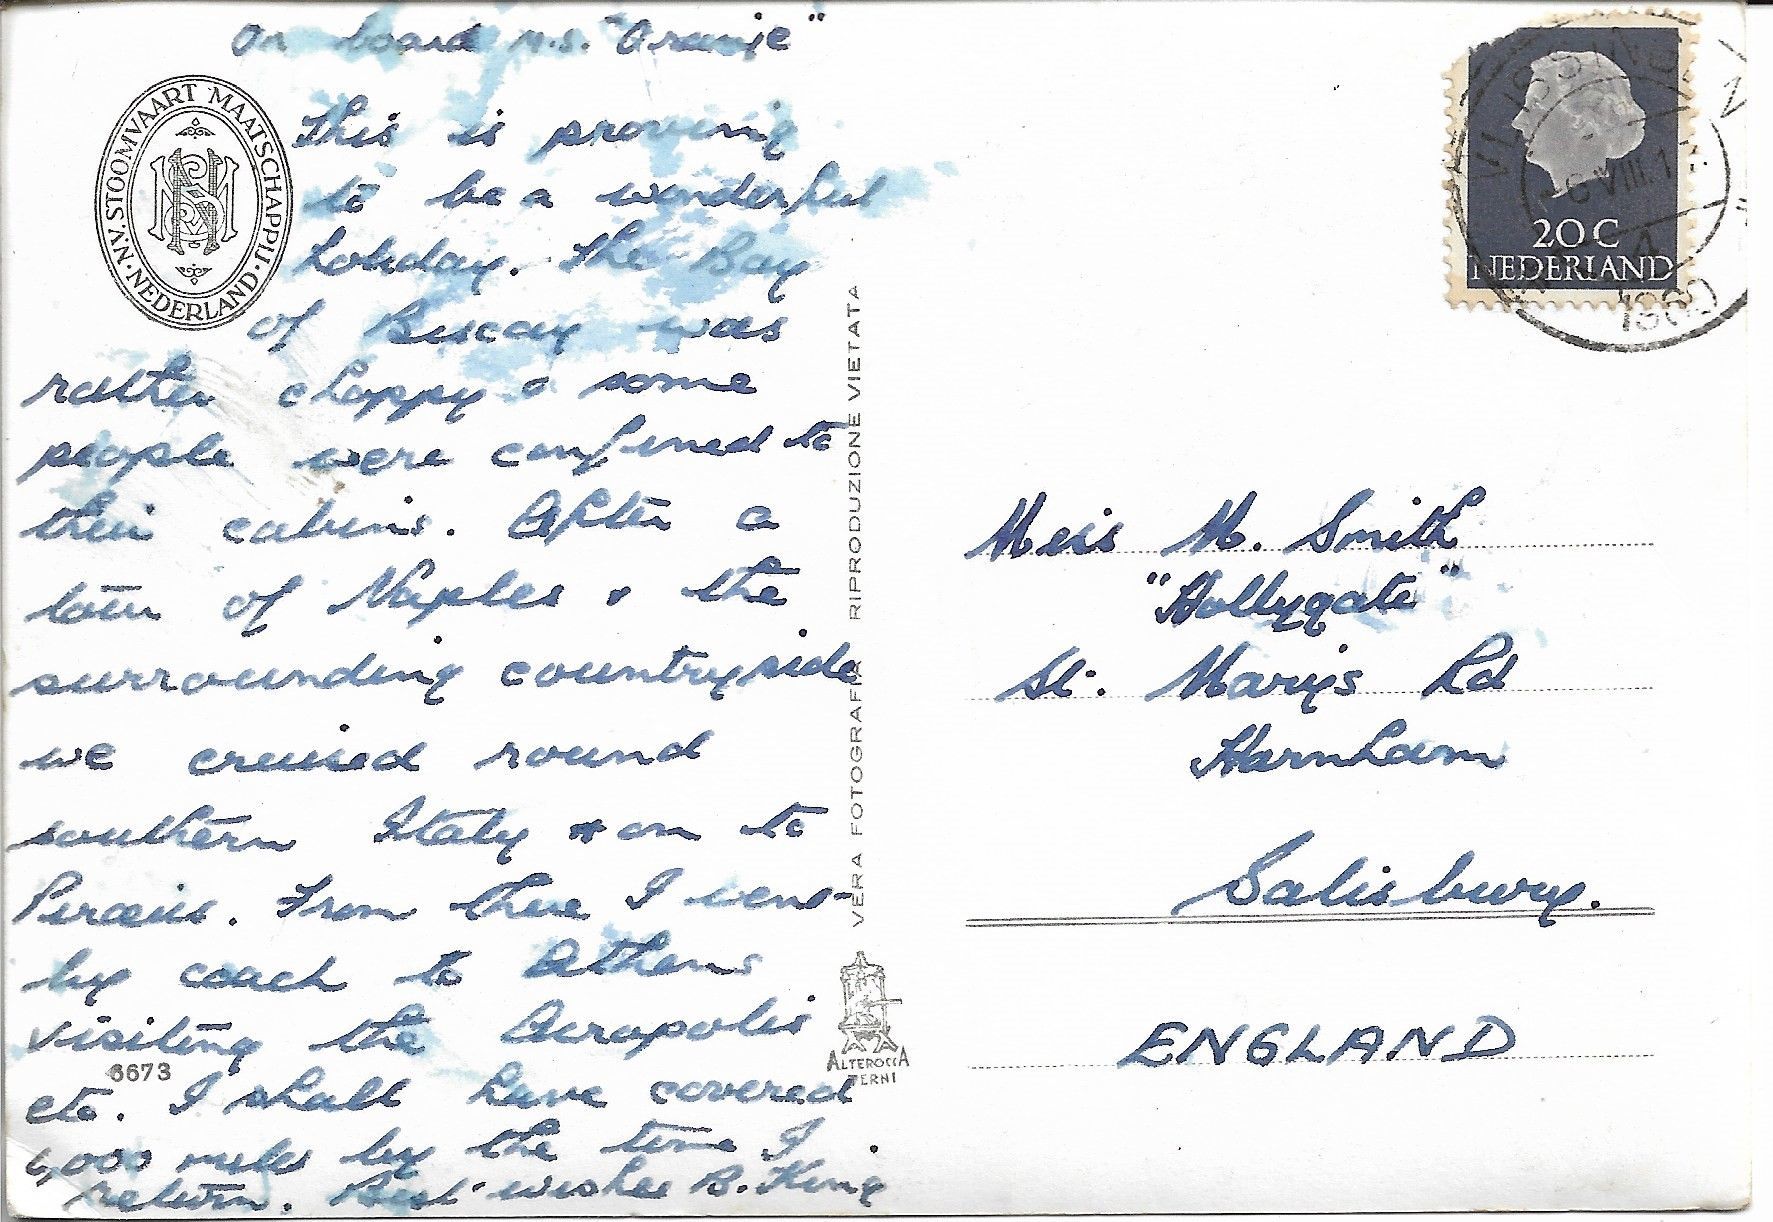 On board m.s. "Oranje"
N.V. STOOMVAART MAATSCHAPPIJ · NEDERLAND ·
This is proving
to be a wonderful
holiday. The Bay
of Biscay was
rather choppy & some
people were confined to
their cabins. After a
tour of Naples & the
surrounding countryside
we cruised round
southern Italy & on to
Piraeus. From there I went
by coach to Athens
visiting the Acropolis
6673
etc. I shall have covered
6,000 miles by the time I
return. Best wishes B. King
VERA FOTOGRAFIA RIPRODUZIONE VIETATA
ALTEROCCA
TERNI
20 C
NEDERLAND
VLISSINGEN
VIII.1
1960
Miss M. Smith
"Hollygate"
St. Mary's Rd
Harnham
Salisbury.
ENGLAND